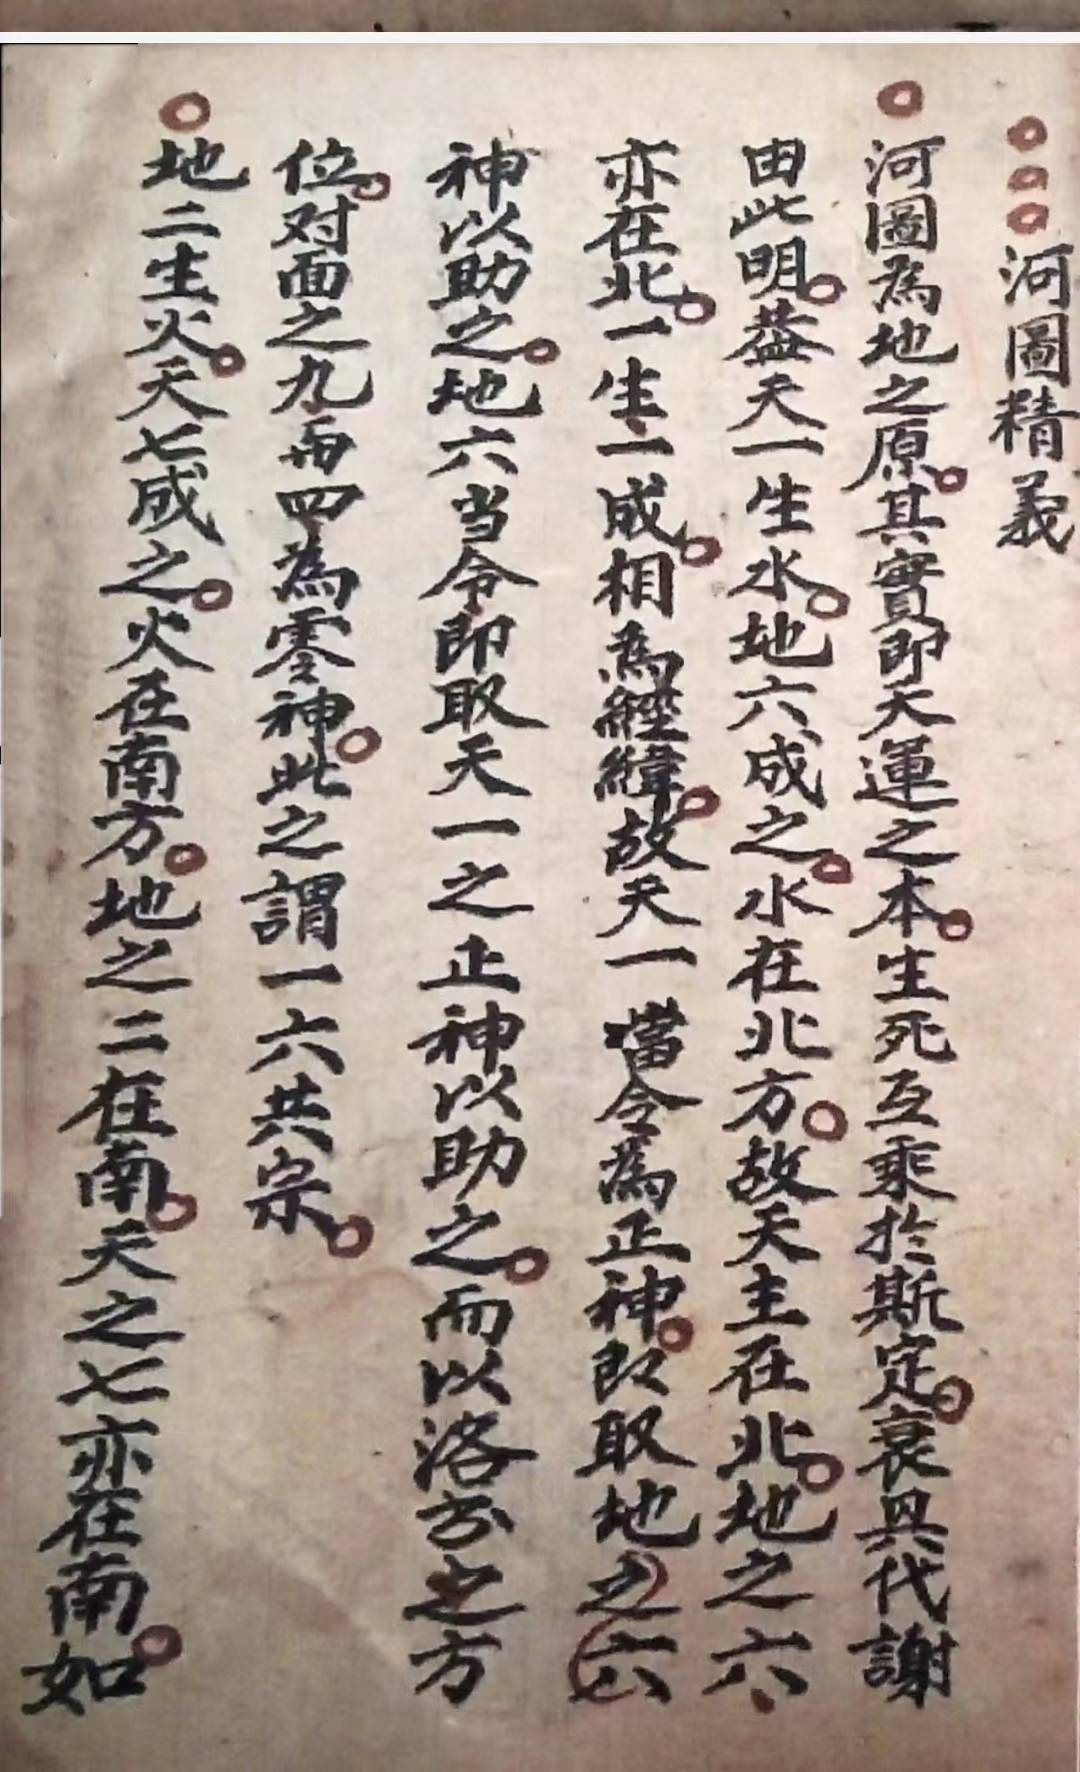 河圖精義
河圖為地之原。其實即天運之本。生死互乘於斯定。衰旺代謝
由此明。蓋天一生水。地六成之。水在北方。故天主在北。地之六
亦在北。一生一成。相為經緯。故天一當令為正神。即取地之六
神以助之。地六当令即取天一之正神以助之。而以洛書之方
位。对面之九而四為零神。此之謂一六共宗。
地二生火。天七成之。火在南方。地之二在南。天之七亦在南。如